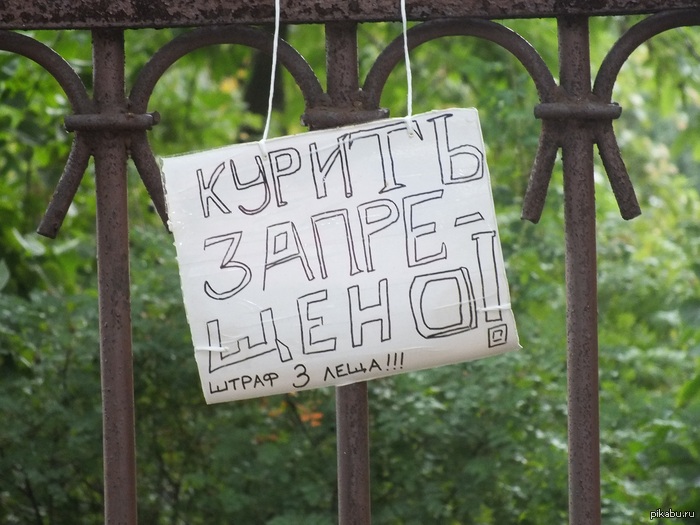 КУРИТЬ
ЗАПРЕ-
ЩЕНО!
ШТРАФ 3 ЛЕЩА!!!
pikabu.ru